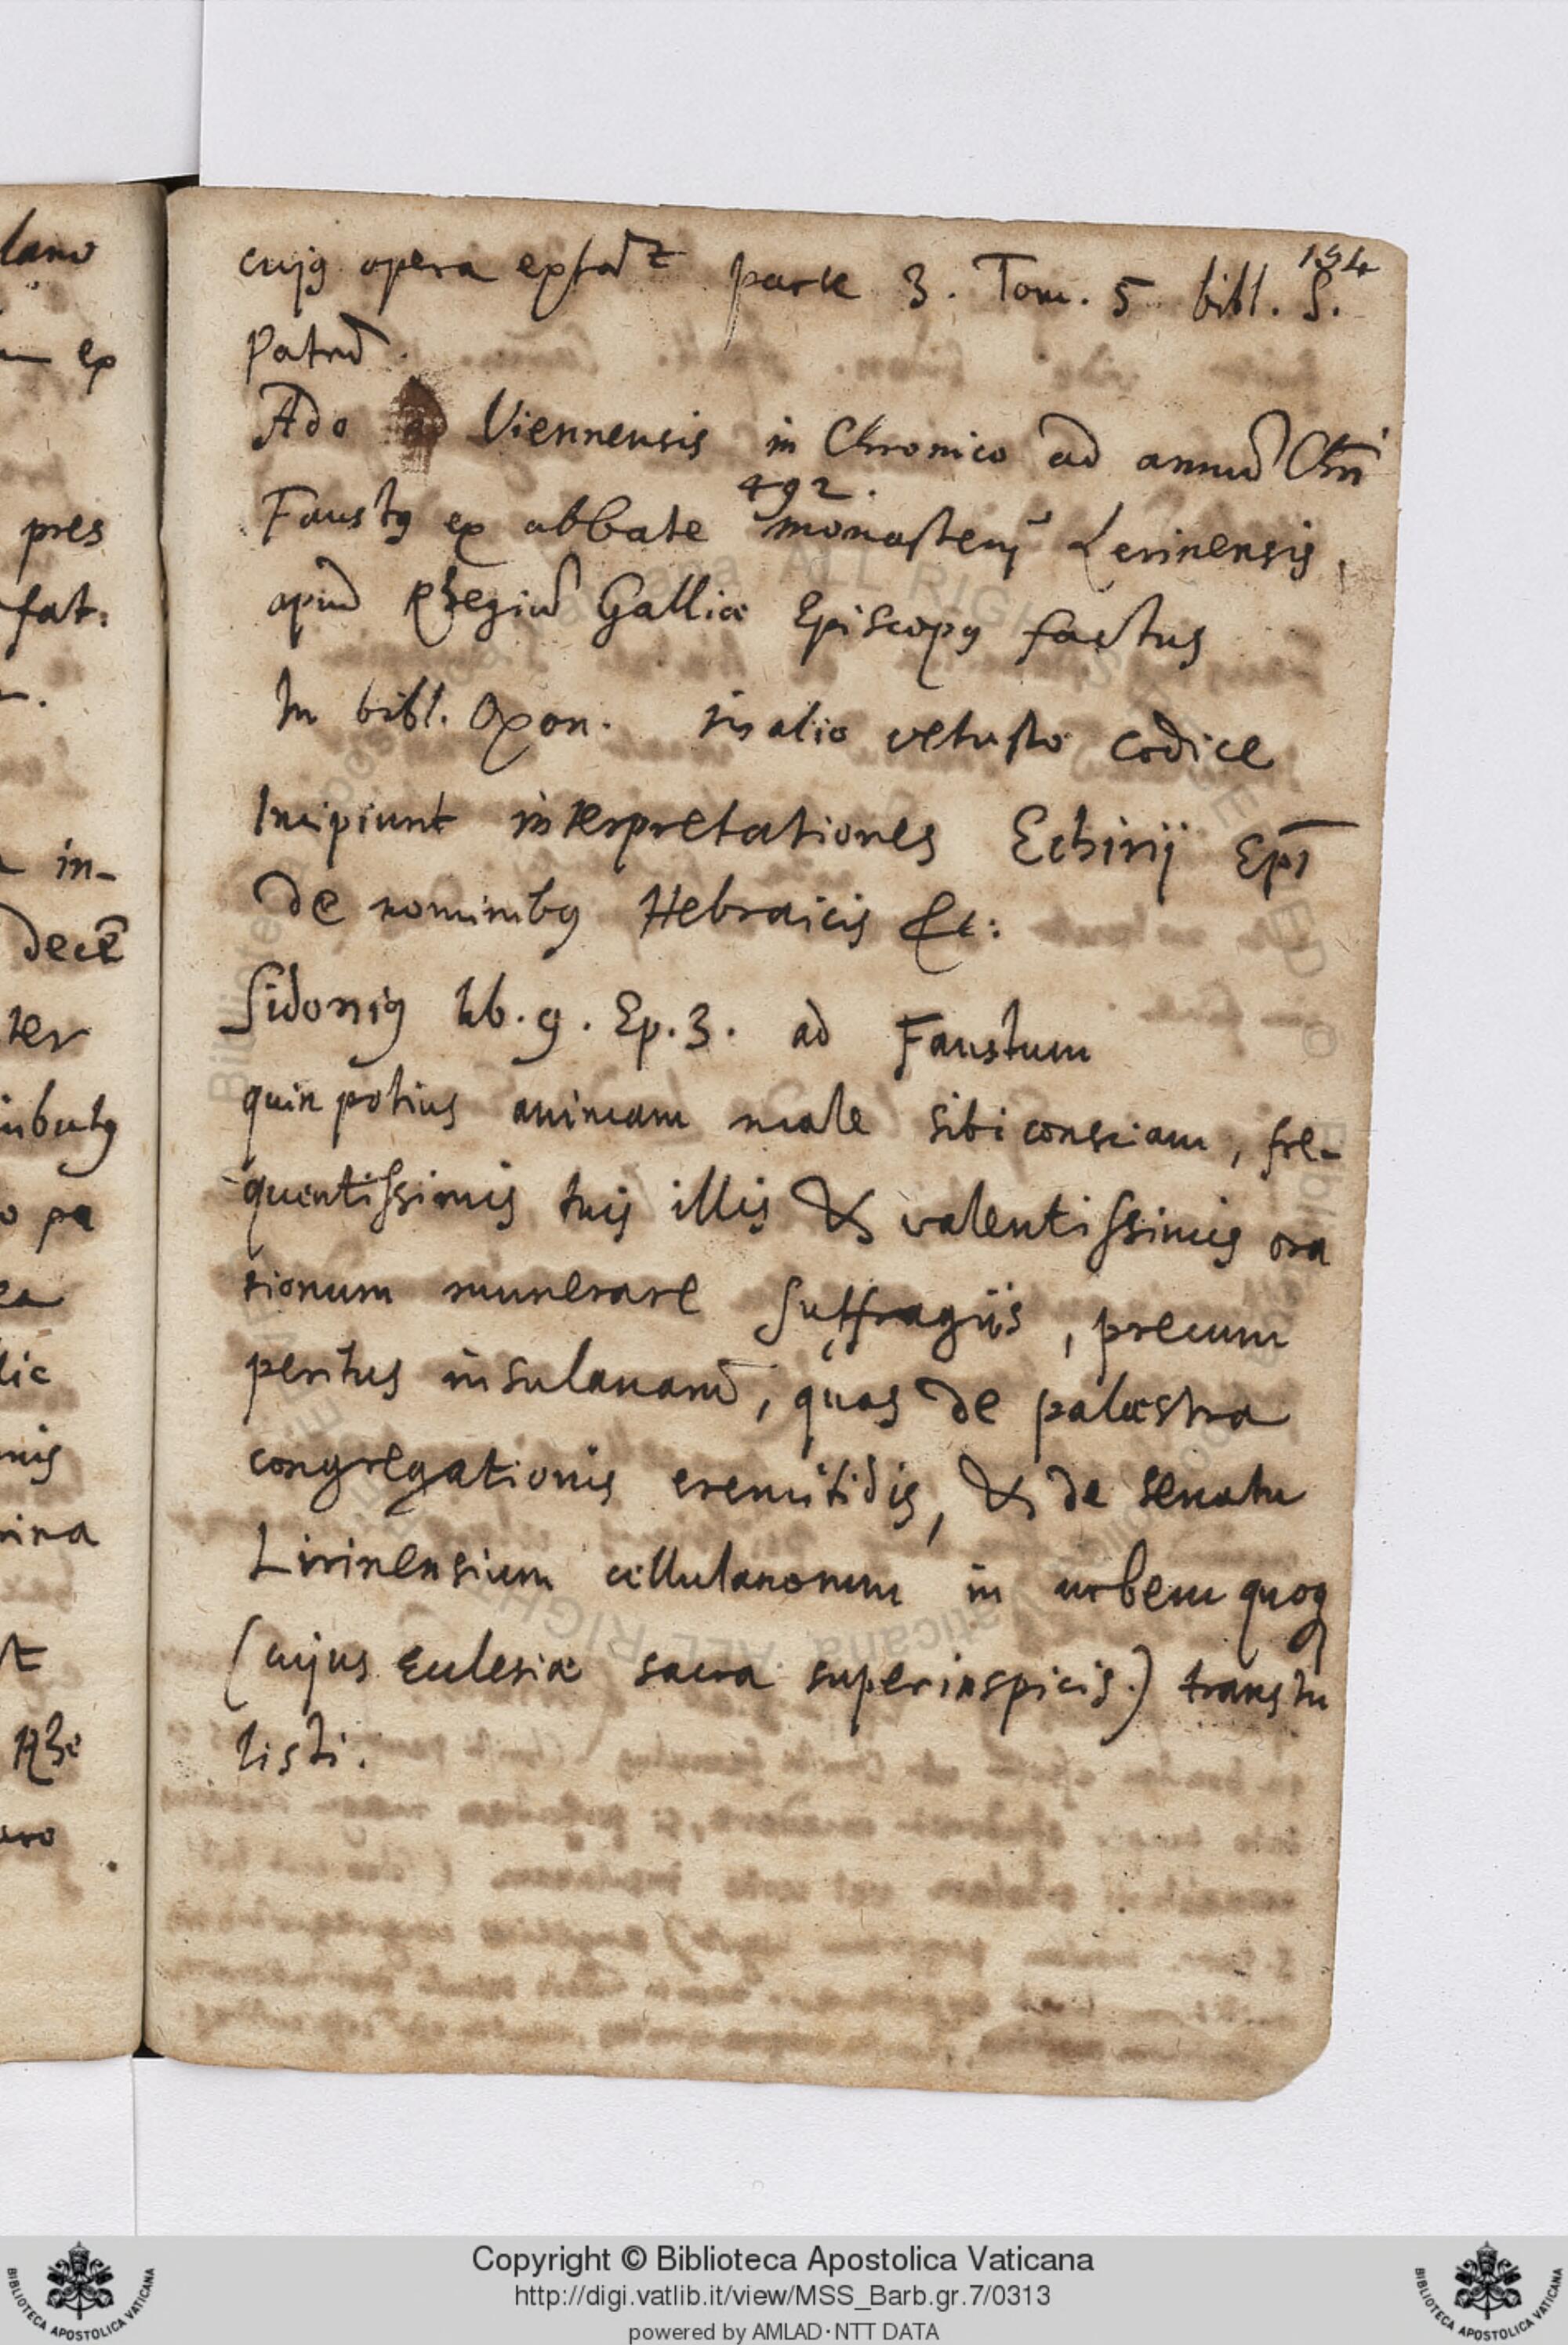 194
cujꝰ opera extāt parte 3. Tom. 5 bibl. S.
Patrū
Ado Viennensis in Chronico ad annū Chri
492.
Faustꝰ ex abbate monasterij Lerinensis,
apud Rhegiū Galliæ Episcopꝰ factus
In bibl. Oxon. in alio vetusto codice
Incipiunt interpretationes Echirij Epi
de nominibꝰ Hebraicis &c:
Sidoniꝰ lib. 9. Ep. 3. ad Faustum
quin potius animam male sibi consciam, fre-
quentissimis tuis illis & valentissimis ora
tionum munerare suffragiis, precum
peritus insulanarū, quas de palæstra
congregationis eremitidis, & de senatu
Lirinensium cellulanorum in urbem quoq
(cujus Ecclesiæ sacra superinspicis.) transtu
listi.
lano
ex
pres
fat.
in-
decē
ter
ibutꝰ
o pa
ea
lic
nis
rina
Rhe
Copyright © Biblioteca Apostolica Vaticana
http://digi.vatlib.it/view/MSS_Barb.gr.7/0313
powered by AMLAD·NTT DATA
BIBLIOTECA APOSTOLICA VATICANA
BIBLIOTECA APOSTOLICA VATICANA